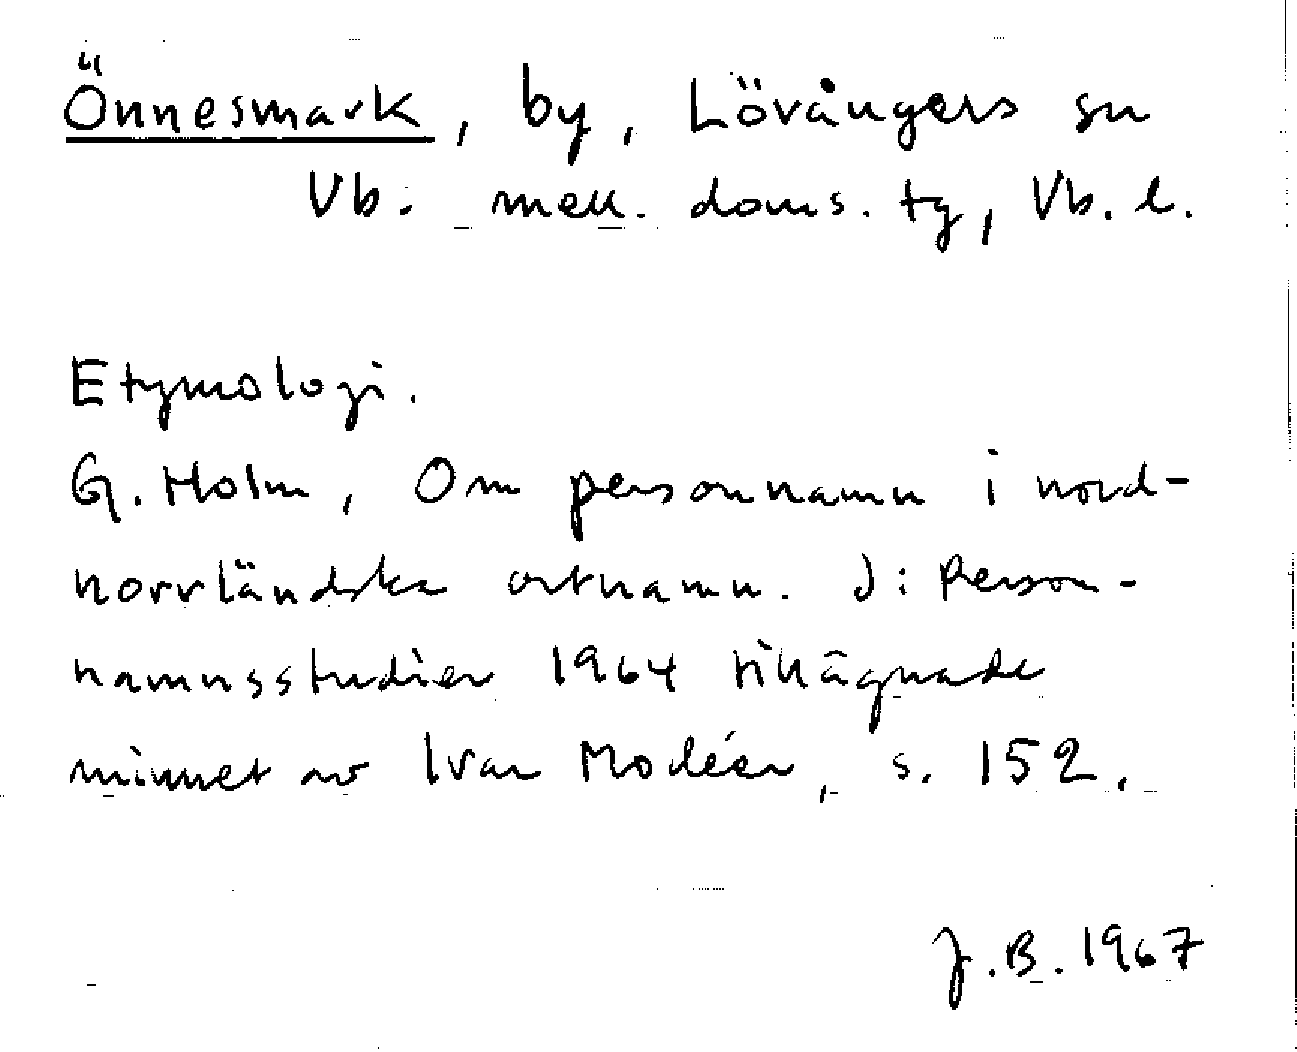 Önnesmark, by, Lövångers sn
Vb. mell. doms. tg, Vb. l.
Etymologi.
G. Holm, Om personnamn i nord-
norrländska ortnamn. I: Person-
namnsstudier 1964 tillägnade
minnet av Ivar Modéer, s. 152.
J.B. 1967